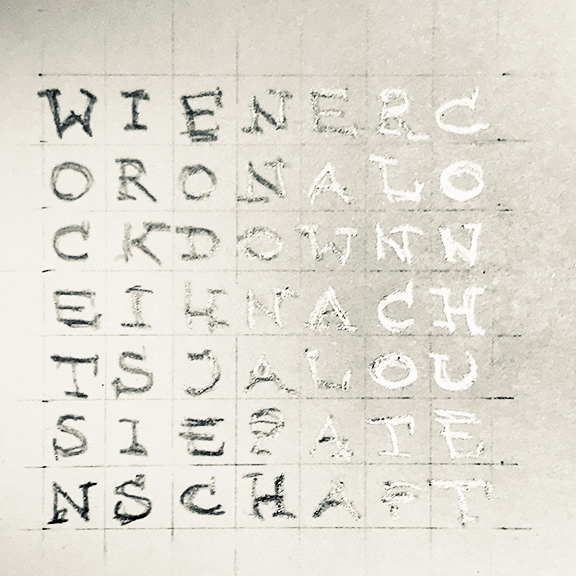 WIENERC
ORONALO
CKDOWNW
EIHNACH
TSJALOU
SIEPATE
NSCHAFT